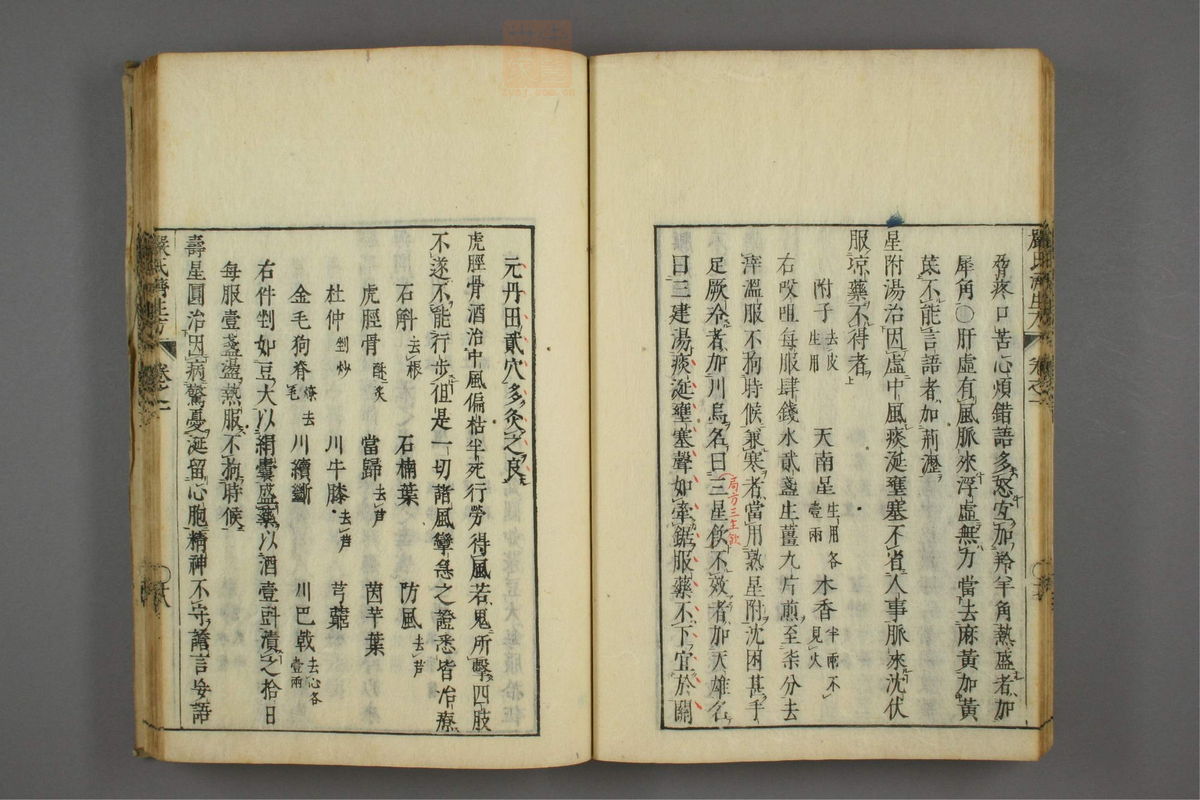 脅疼口苦心煩錯語多怒宜加羚羊角熱盛者加
犀角○肝虛有風脈來浮虛無力當去麻黃加黃
茋不能言語者加荊瀝
星附湯治因虛中風痰涎壅塞不省人事脈來沈伏
服凉藥不得者
附子去皮生用 天南星生用各壹兩 木香半兩不見火
右㕮咀每服肆錢水貳盞生薑九片煎至柒分去
滓溫服不拘時候兼寒者當用熟星附沈困甚手
足厥冷者加川烏名曰三星飲不效者加天雄名
局方三生飲
曰三建湯痰涎壅塞聲如牽鋸服藥不下宜於關
元丹田貳穴多灸之良
虎脛骨酒治中風偏枯半死行勞得風若鬼所擊四肢
不遂不能行步但是一切諸風攣急之證悉皆治療
石斛去根 石楠葉 防風去芦
虎脛骨酥炙 當歸去芦 茵芋葉
杜仲剉炒 川牛膝去芦 芎藭
金毛狗脊燎去毛 川續斷 川巴戟去心各壹兩
右件剉如豆大以絹囊盛藥以酒壹㪷漬之拾日
每服壹盞盪熱服不拘時候
壽星圓治因病驚憂涎留心胞精神不守譫言妄語
嚴氏濟生方 卷之一